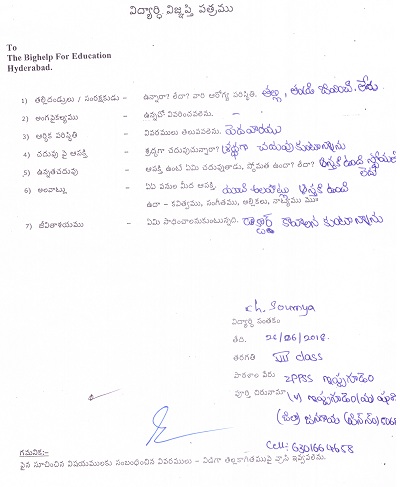 విద్యార్ధి విజ్ఞప్తి పత్రము
To
The Bighelp For Education
Hyderabad.
1) తల్లిదండ్రులు / సంరక్షకుడు - ఉన్నారా? లేదా? వారి ఆరోగ్య పరిస్థితి. తల్లి, తండ్రి లేరు
2) అంగవైకల్యము - ఉన్నచో వివరించవలెను. -
3) ఆర్ధిక పరిస్థితి - వివరములు తెలుపవలెను. పేదవారము
4) చదువు పై ఆసక్తి - శ్రద్ధగా చదువుచున్నారా? శ్రద్ధగా చదువు కుంటున్నాను
5) ఉన్నతచదువు - ఆసక్తి ఉంటే ఏమి చదువుతాడు, స్తోమత ఉందా? లేదా? ఆసక్తి ఉంది స్తోమత లేదు
6) అలవాట్లు - ఏఏ పనుల మీద ఆసక్తి. అలవాట్లు ఆసక్తి ఉంది
ఉదా - కవిత్వము, సంగీతము, అల్లికలు, నాట్యము
7) జీవితాశయము - ఏమి సాధించాలనుకుంటున్నది. డాక్టర్ కావాలని కుంటున్నాను
ch. Soumya
విద్యార్ధి సంతకం
తేది. 26/06/2018.
తరగతి VIII class
పాఠశాల పేరు ZPPSS ఇప్పగూడెం
పూర్తి చిరునామా (v) ఇప్పగూడెం (మ)
(జిల్లా) జనగామ
Cell: 6301664658
గమనిక:-
పైన సూచించిన విషయములకు సంబంధించిన వివరములు - విడిగా తెల్లకాగితముపై వ్రాసి ఇవ్వవలెను.